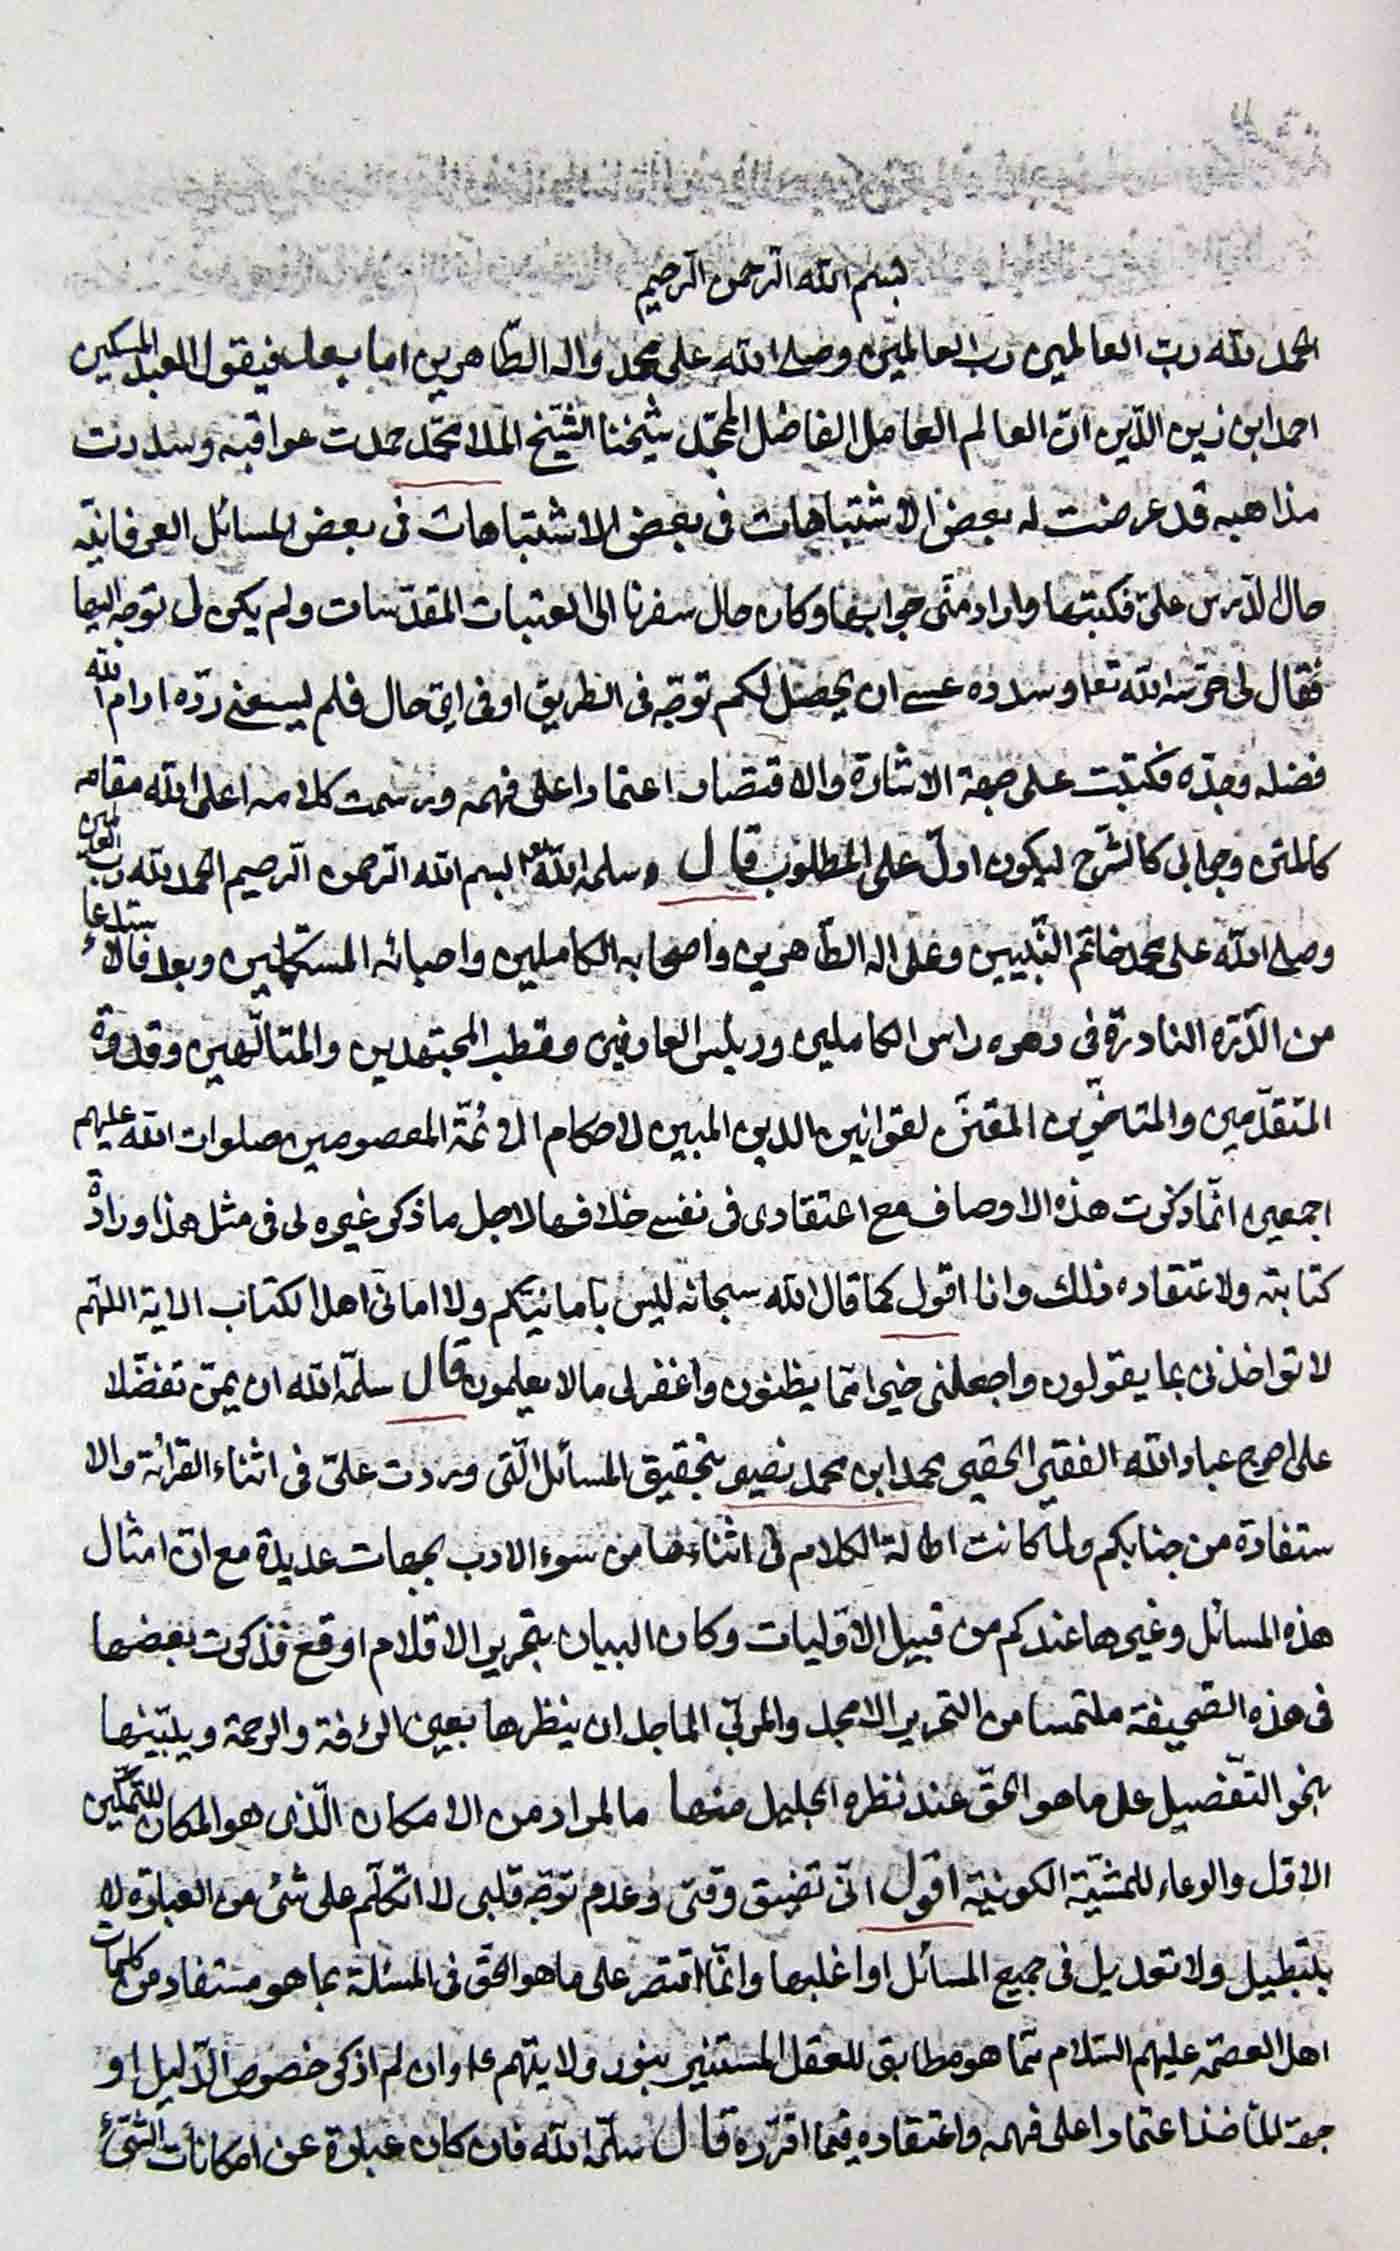 بسم الله الرحمن الرحيم
الحمد لله رب العالمين رب العالمين وصلى الله على محمد واله الطاهرين اما بعد فيقول العبد المسكين
احمد ابن زين الدين ان العالم العامل الفاضل الممجد شيخنا الشيخ الملا محمد حمدت عواقبه وسددت
مذاهبه قد عرضت له بعض الاشتباهات فى بعض الاشتباهات فى بعض المسائل العرفانية
حال الدرس على فكتبها واراد منى جوابها وكان حال سفرنا الى العتبات المقدسات ولم يكن لى توجه اليها
فقال لى حرسه الله تعا وسدده عسى ان يحصل لكم توجه فى الطريق او فى اى حال فلم يسعنى رده ادام الله
فضله ومجده فكتبت على جهة الاشارة والاقتصار اعتمادا على فهمه ورسمت كلامه اعلى الله مقامه
كالمتن وجوابى كالشرح ليكون ادل على المطلوب قال سلمه الله تعا بسم الله الرحمن الرحيم الحمد لله رب العالمين
وصلى الله على محمد خاتم النبيين وعلى اله الطاهرين واصحابه الكاملين واحبائه المستكملين وبعد فالاستدعا
من الدرة النادرة فى دهره راس الكاملين ورئيس العارفين وقطب المجتهدين والمتالهين وقدوة
المتقدمين والمتاخرين المقنن لقوانين الدين المبين لاحكام الائمة المعصومين صلوات الله عليهم
اجمعين انما ذكرت هذه الاوصاف مع اعتقادى فى نفسى خلافها لاجل ما ذكر غيره لى فى مثل هذا وارادة
كتابته ولاعتقاده ذلك وانا اقول كما قال الله سبحانه ليس بامانيكم ولا امانى اهل الكتاب الاية اللهم
لا تواخذنى بما يقولون واجعلنى خيرا مما يظنون واغفر لى مالا يعلمون قال سلمه الله ان يمن تفضلا
على احوج عباد الله الفقير الحقير محمد ابن محمد نصير بتحقيق المسائل التى وردت على فى اثناء القرائة والا
ستفادة من جنابكم ولما كانت اطالة الكلام فى اثناءها من سوء الادب بجهات عديدة مع ان امثال
هذه المسائل وغيرها عندكم من قبيل الاوليات وكان البيان بتحرير الاقلام اوقع فذكرت بعضها
فى هذه الصحيفة ملتمسا من التحرير الامجد والمربى الماجد ان ينظرها بعين الرافة والرحمة ويبينها
بنحو التفصيل على ما هو الحق عند نظره الجليل منها ما المراد من الامكان الذى هو المكان للتمكين
الاول والوعاء للمشية الكونية اقول انى تضيق وقتى وعدم توجه قلبى لا اتكلم على شئ من العبارة لا
بتبطيل ولا تعديل فى جميع المسائل او اغلبها وانما اقتصر على ما هو الحق فى المسئلة بما هو مستفاد من كلمات
اهل العصمة عليهم السلام مما هو مطابق للعقل المستنير بنور ولايتهم وان لم اذكر خصوص الدليل او
جهة الماخذ اعتمادا على فهمه واعتقاده فيما اقرره قال سلمه الله فان كان عبارة عن امكانات الشئ